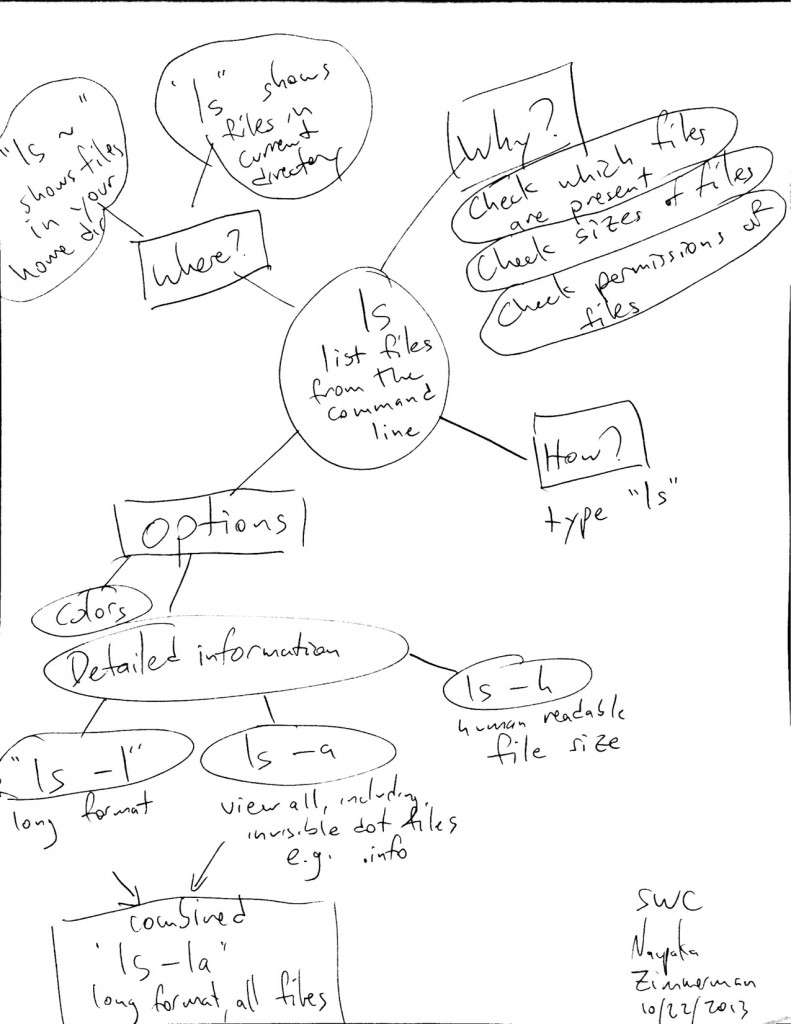 "ls ~"
shows files
in your
home dir
"ls" shows
files in
current
directory
Where?
Why?
Check which files
are present
Check sizes of files
Check permissions of
files
ls
list files
from the
command
line
How?
type "ls"
options
colors
Detailed information
ls -h
human readable
file size
"ls -l"
long format
ls -a
view all, including
invisible dot files
e.g. .info
combined
"ls -la"
long format, all files
SWC
Zimmerman
10/22/2013